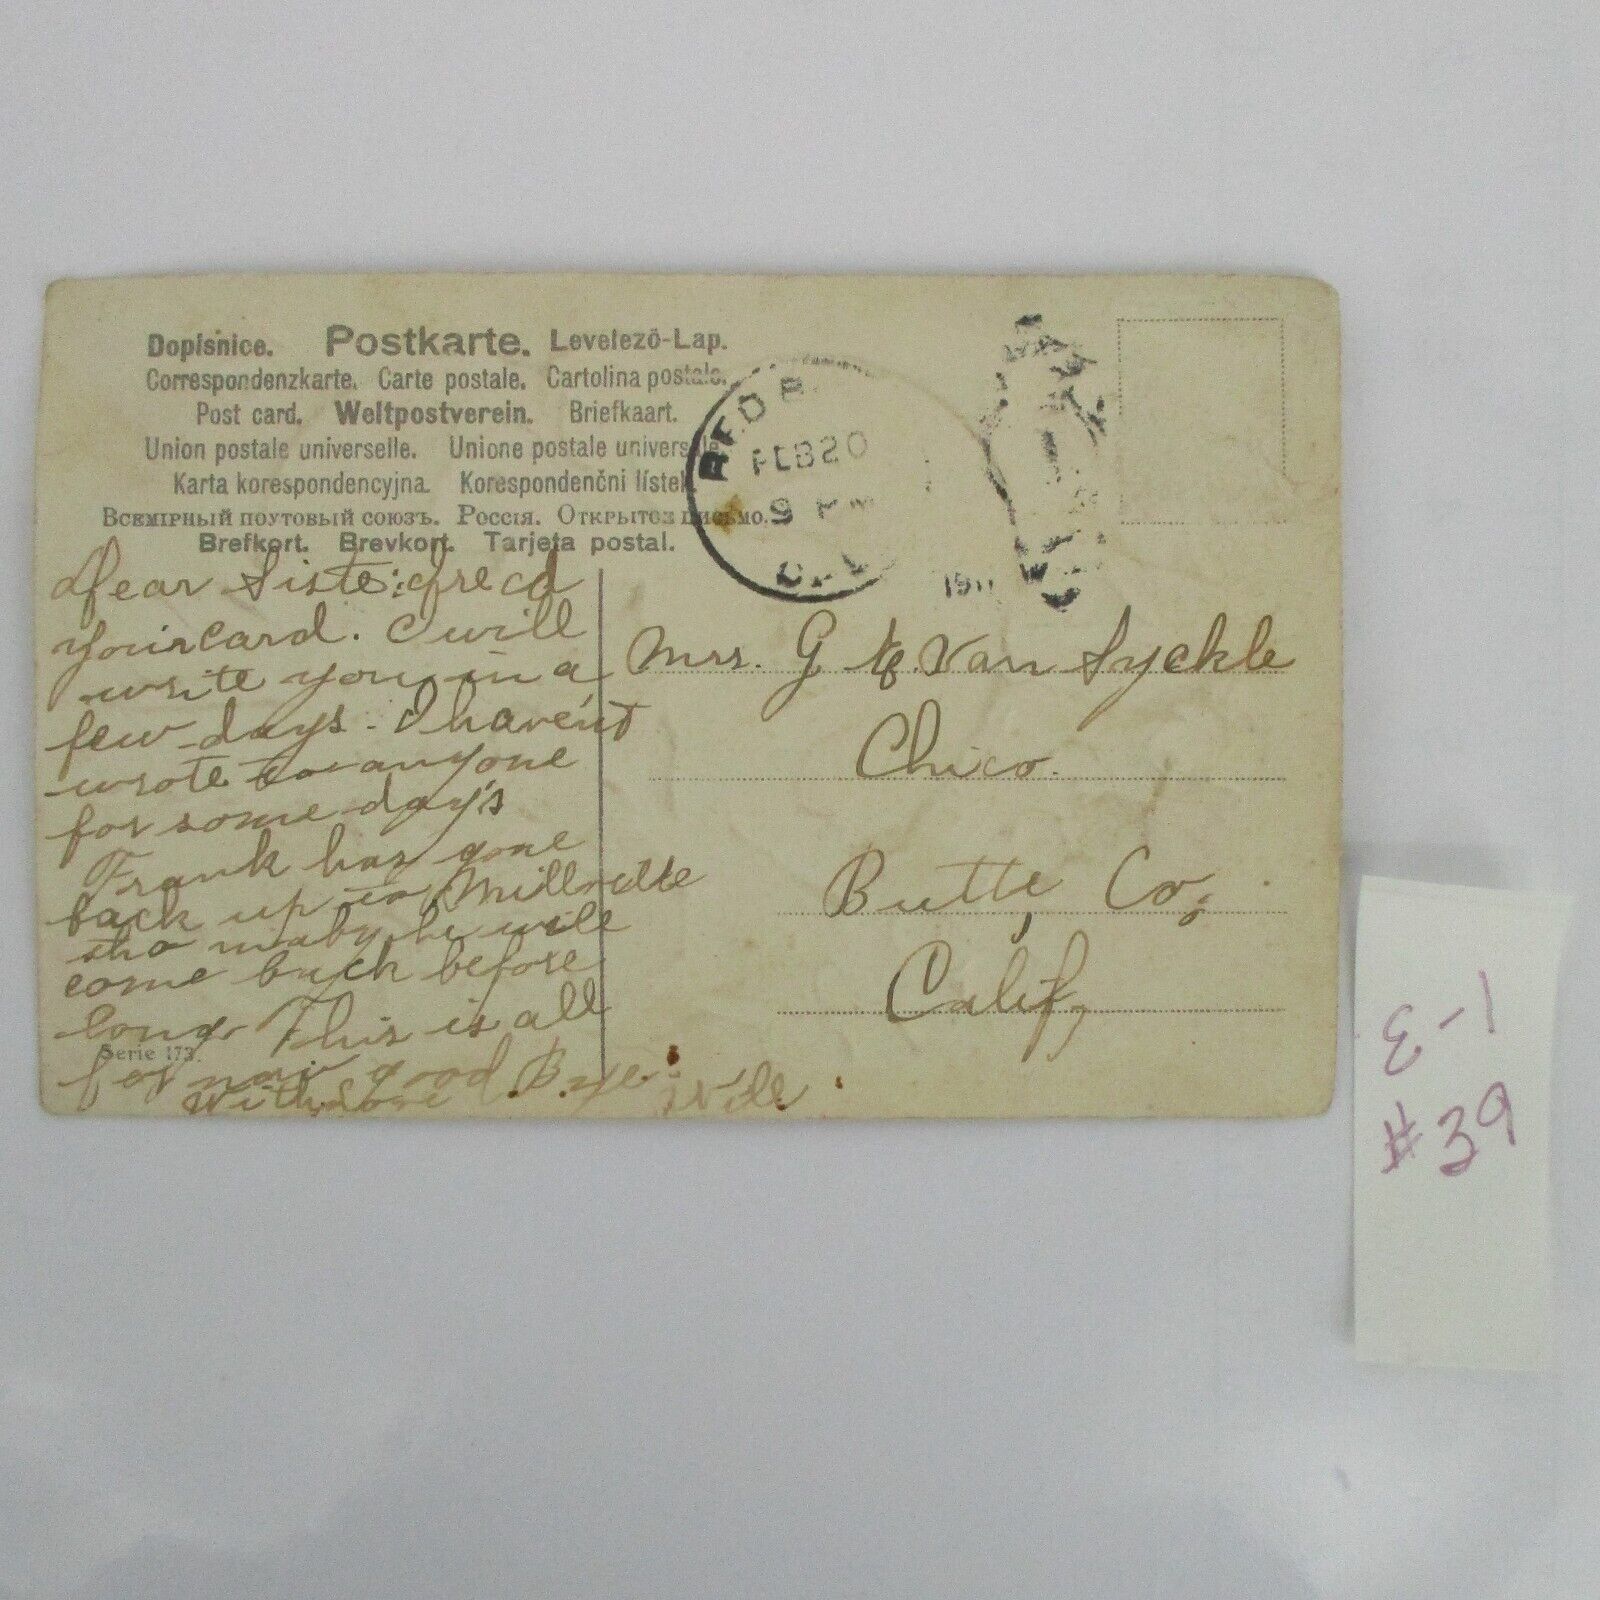 Dopisnice. Postkarte. Levelezö-Lap.
Correspondenzkarte. Carte postale. Cartolina postale.
Post card. Weltpostverein. Briefkaart.
Union postale universelle. Unione postale universale
Karta korespondencyjna. Korespondenčni lístek.
Всемірный поутовый союзъ. Россія. Открытое письмо.
Brefkort. Brevkort. Tarjeta postal.
FEB 20
9
CAL
191
Dear Siste: I recd
your card. I will
write you in a
few days. I haven't
wrote to anyone
for some day's
Frank has gone
back up to
tho maby he will
come back before
long. This is all
for now good Bye.
With Love
Serie 173.
Mrs. G E. Van Syckle
Chico.
Butte Co,
Calif,
E-1
#39